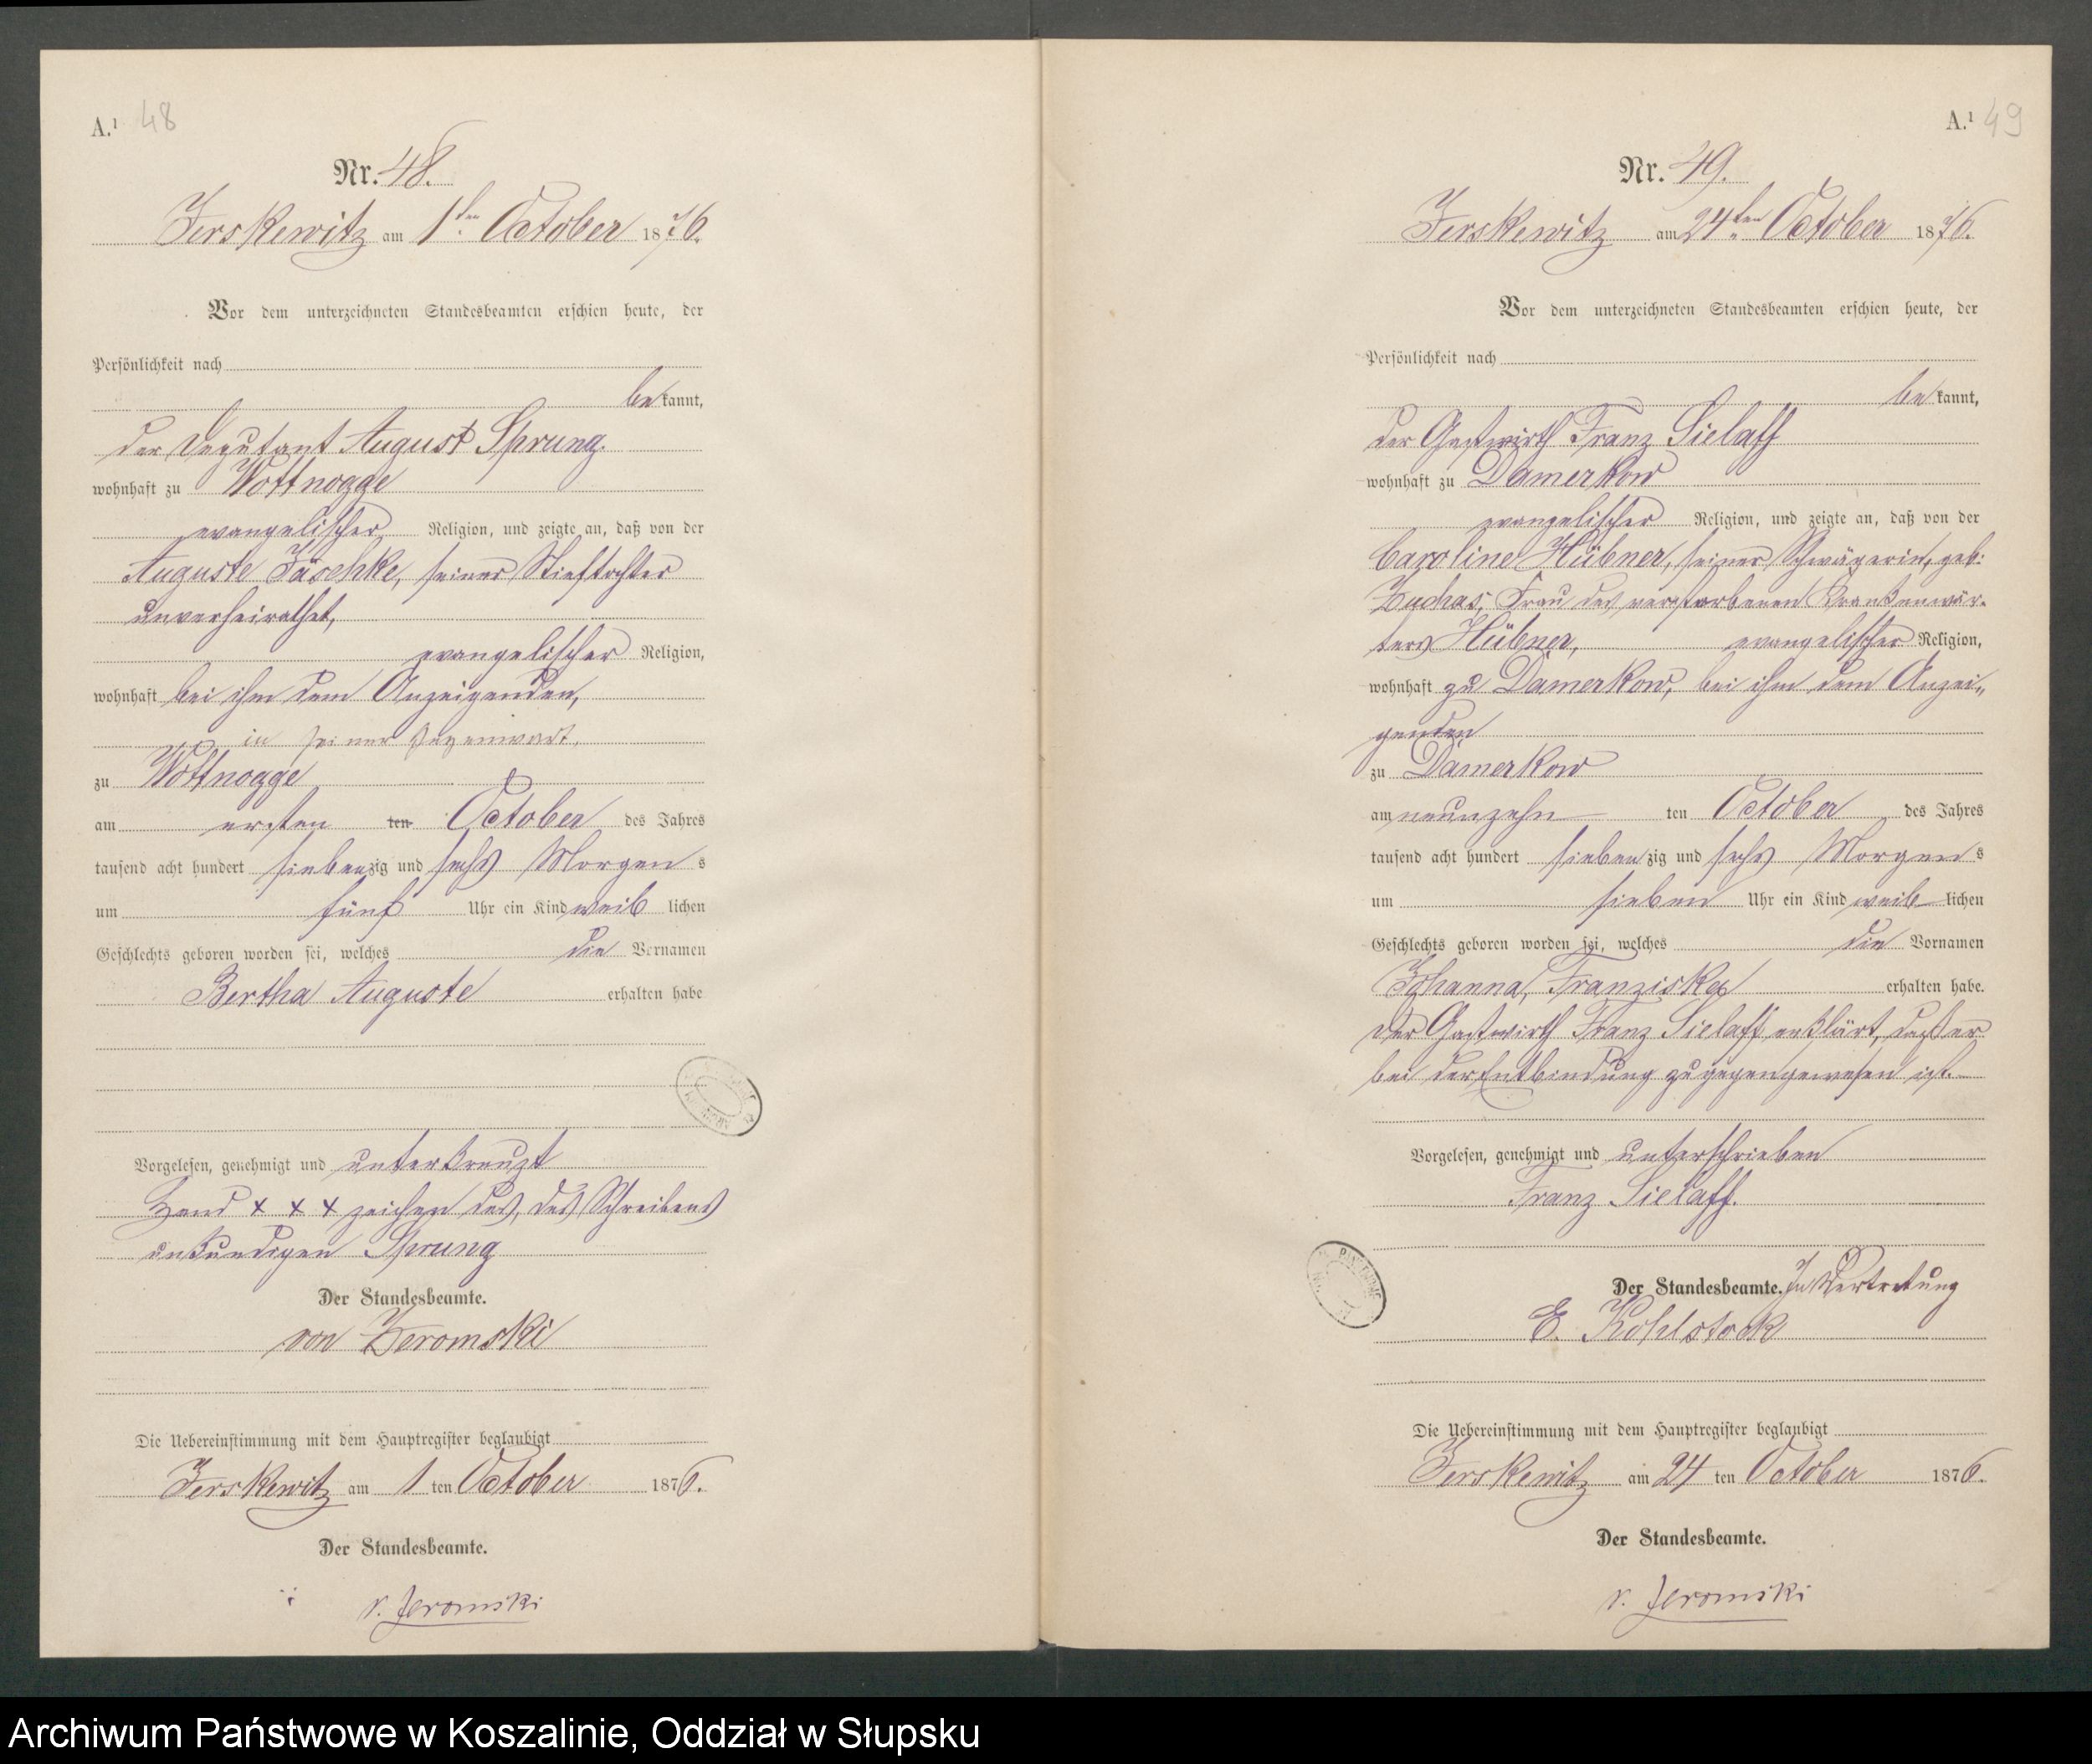 A.¹ 48
Nr. 48.
Jerskewitz am 1ten October 1876.
Vor dem unterzeichneten Standesbeamten erschien heute, der
Persönlichkeit nach
bekannt,
der Deputant August Sprung.
wohnhaft zu Wottnogge
evangelischer Religion, und zeigte an, daß von der
Auguste Jäschke, seiner Stieftochter
unverheirathet,
evangelischer Religion,
wohnhaft bei ihm dem Anzeigenden,
in seiner Gegenwart,
zu Wottnogge
am ersten ten October des Jahres
tausend acht hundert siebenzig und sechs Morgens
um fünf Uhr ein Kind weiblichen
Geschlechts geboren worden sei, welches die Vornamen
Bertha Auguste erhalten habe
Vorgelesen, genehmigt und unterkreuzt
Hand x x x zeichen des, des Schreibens
unkundigen Sprung
Der Standesbeamte.
von Zeromski
Die Uebereinstimmung mit dem Hauptregister beglaubigt
Jerskewitz am 1 ten October 1876.
Der Standesbeamte.
v. Zeromski
A.¹ 49
Nr. 49.
Jerskewitz am 24ten October 1876.
Vor dem unterzeichneten Standesbeamten erschien heute, der
Persönlichkeit nach
bekannt,
der Gastwirth Franz Sielaff
wohnhaft zu Damerkow
evangelischer Religion, und zeigte an, daß von der
Caroline Hübner, seiner Schwägerin, geb:
Zuchas, Frau des verstorbenen Krankenwär-
ters Hübner, evangelischer Religion,
wohnhaft zu Damerkow, bei ihm dem Anzei„
genden
zu Damerkow
am neunzehn ten October des Jahres
tausend acht hundert siebenzig und sechs Morgens
um sieben Uhr ein Kind weiblichen
Geschlechts geboren worden sei, welches die Vornamen
Johanna, Franziska erhalten habe.
Der Gastwirth Franz Sielaff erklärt, daß er
bei der Entbindung zugegengewesen ist.
Vorgelesen, genehmigt und unterschrieben
Franz Sielaff.
Der Standesbeamte. In Vertretung
E. Kohlstock
Die Uebereinstimmung mit dem Hauptregister beglaubigt
Jerskewitz am 24 ten October 1876.
Der Standesbeamte.
v. Zeromski
Archiwum Państwowe w Koszalinie, Oddział w Słupsku